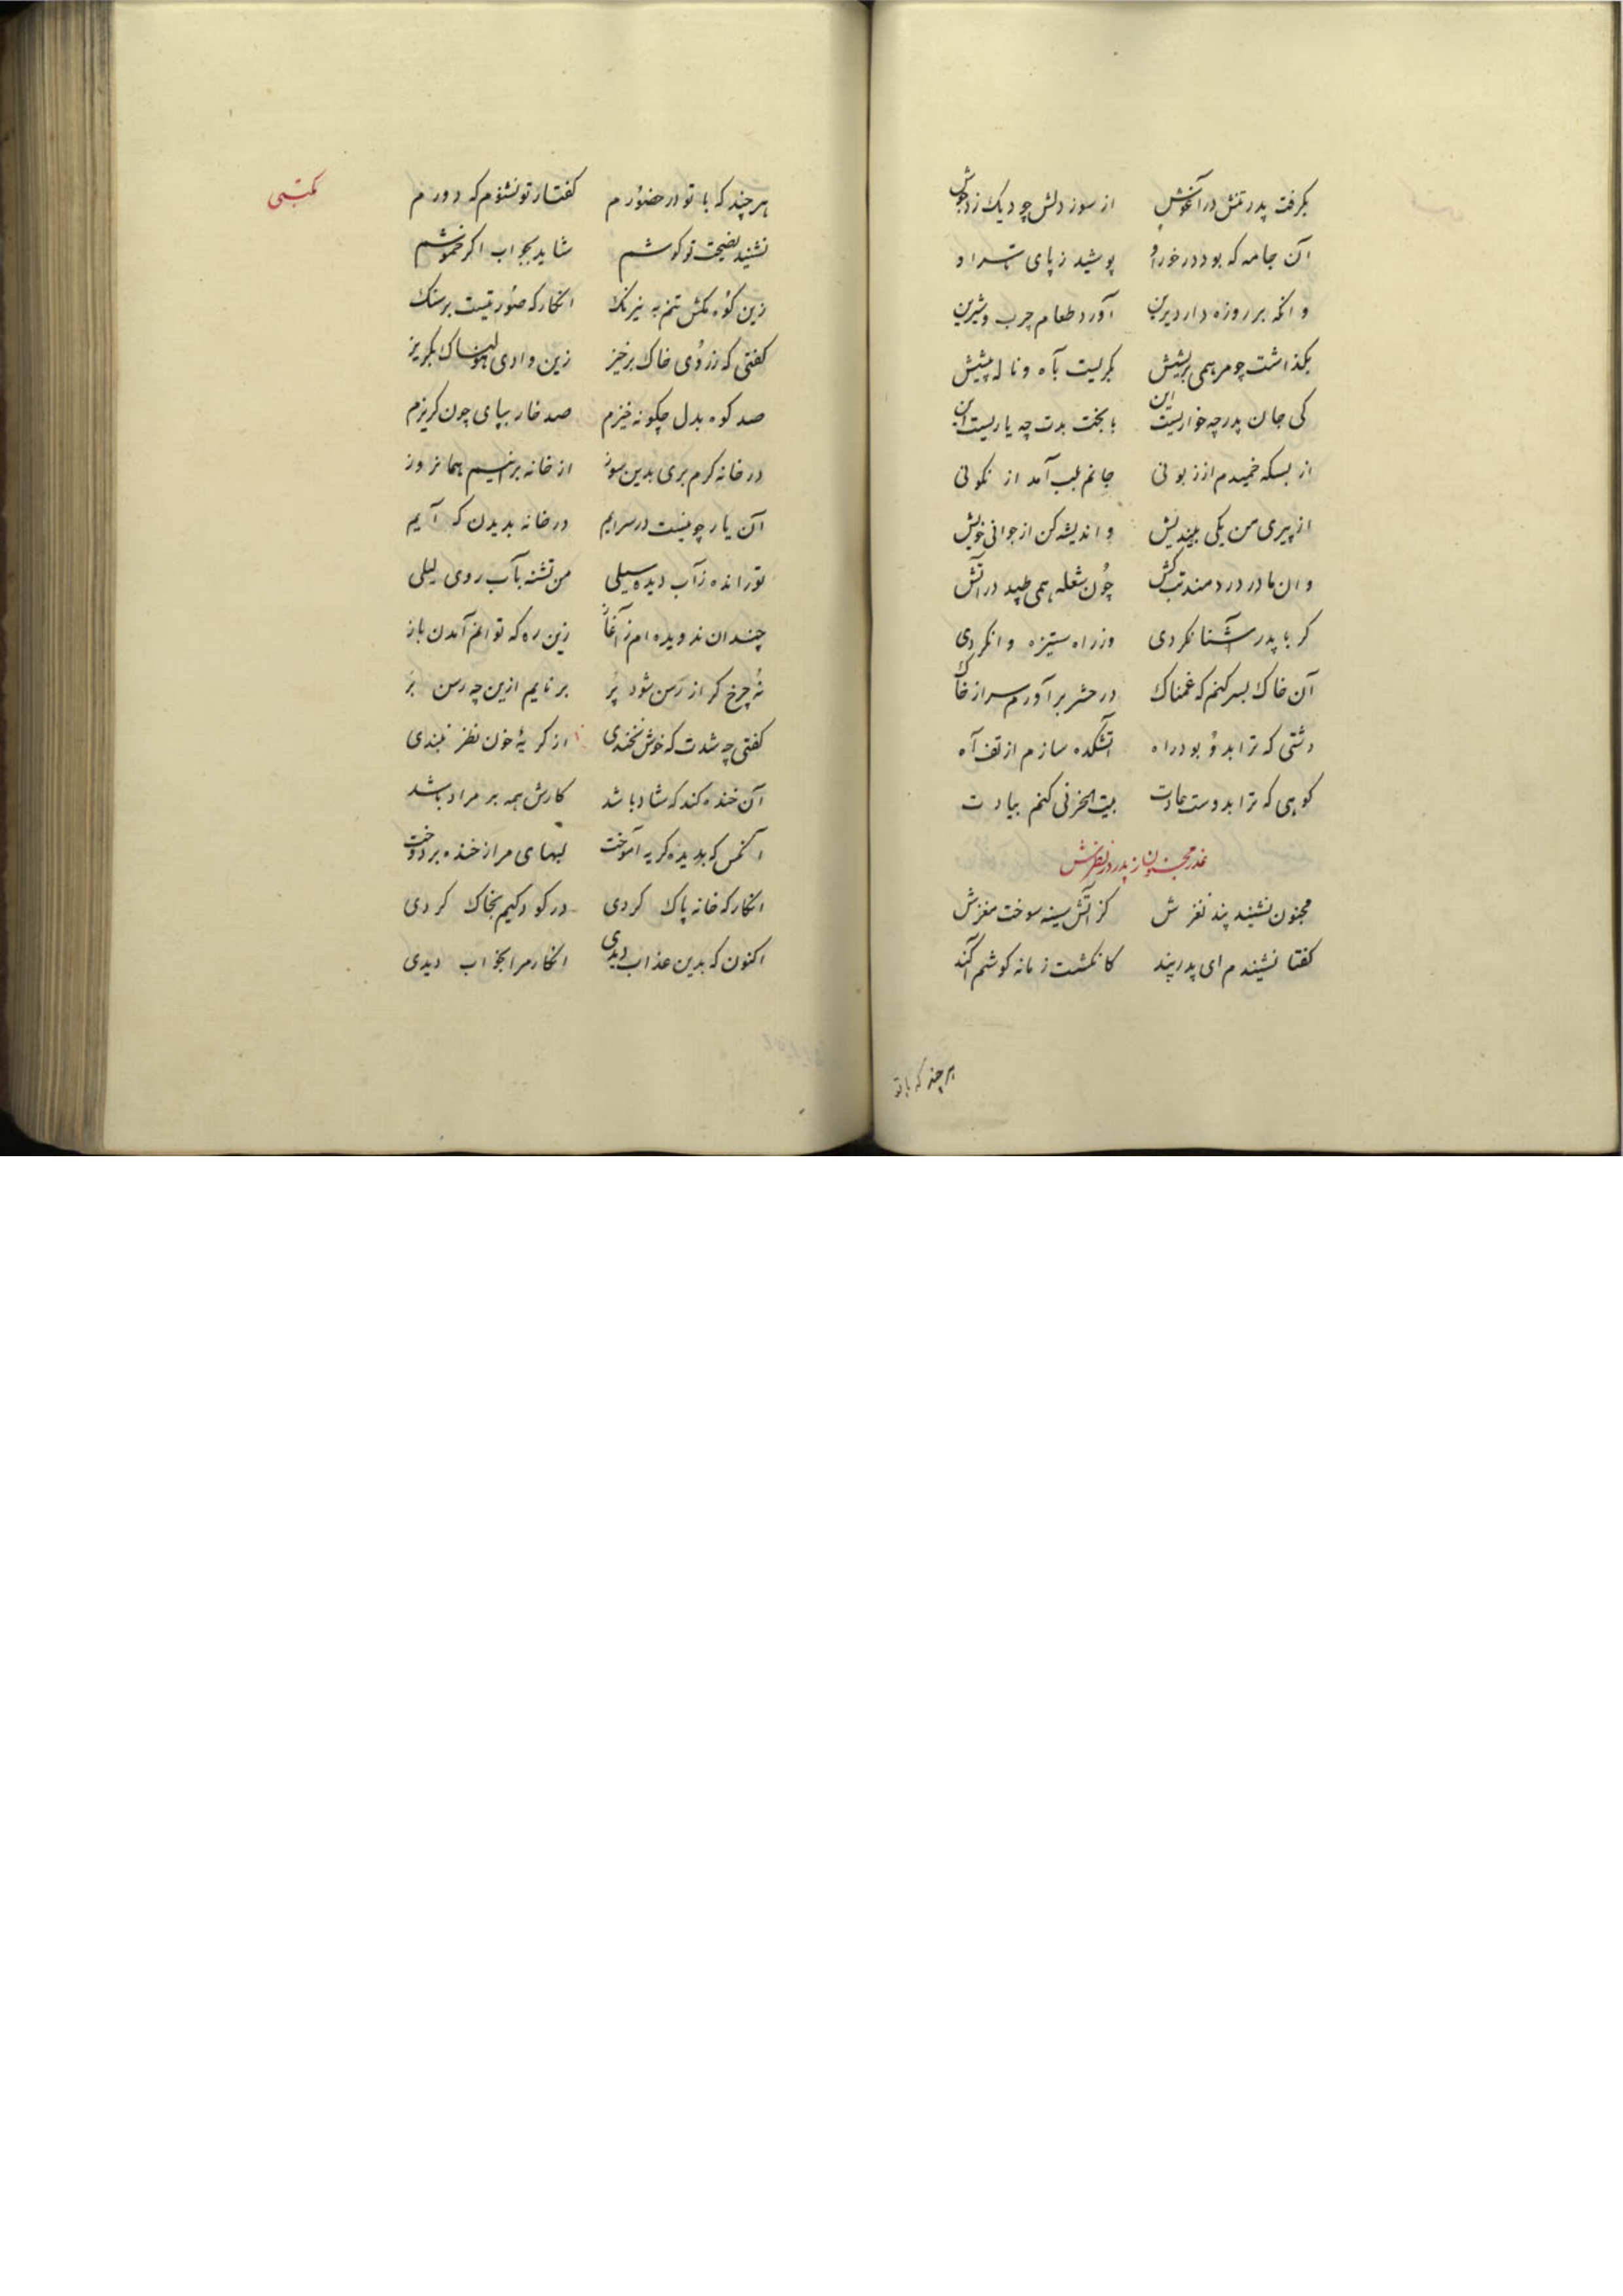 بگرفت پدر تنش در آغوش از سوز دلش چو دیک زد جوش
آن جامه که بود درخور او پوشید ز پای تا سر او
وانکه بر روزه دار دیرین آورد طعام چرب و شیرین
بگذاشت چو مرهمی بریشش بگریست بآه و ناله پیشش
کی جان پدر چه خواریست این با بخت بدت چه یاریست این
از بسکه خمیدم از زبونی جانم بلب آمد از نکونی
از پیری من یکی بیندیش و اندیشه کن از جوانی خویش
وان مادر دردمند تب کش چون شعله همی طپید در آتش
کر با پدر آشنا نکردی وز راه ستیزه وا نکردی
آن خاک بسر کنم که غمناک در حشر برآورم سر از خاک
دشتی که ترا بدو بود راه آتشکده سازم از تف آه
کوهی که ترا بدوست عادت بیت الحزنی کنم بیادت
عذر مجنون از پدر در نفرتش
مجنون نشنید پند نغزش کز آتش سینه سوخت مغزش
کفتا نشنیدم ای پدر پند کانکشت زمانه کوشم آکند
هر چند که با تو
مکتبی
هر چند که با تو در حضورم کفتار تو نشنوم که دورم
نشنید نصیحت تو کوشم شاید بجواب اکر خموشم
زین کوه مکش تنم به نیرنک انکار که صورتیست بر سنک
کفتی که ز روی خاک برخیز زین وادی هولناک بکریز
صد کوه بدل چکونه خیزم صد خار بپای چون کریزم
در خانه کرم بری بدین سوز از خانه برانیم همانروز
آن یار چو نیست در سرایم در خانه بدیدن که آیم
تو رانده ز آب دیده سیلی من تشنه بآب روی لیلی
چندان ندویده ام ز آغاز زین ره که توانم آمدن باز
نه چرخ کر از رسن شود پر برنایم ازین چه رسن بر
کفتی چه شدت که خوش نخندی از کریهٔ خون نظر نبندی
آن خنده کند که شاد باشد کارش همه بر مراد باشد
آنکس که بدیده کریه آموخت لبهای مرا ز خنده بردوخت
انکار که خانه پاک کردی در کودکیم بخاک کردی
اکنون که بدین عذاب دیدی انکار مرا بخواب دیدی